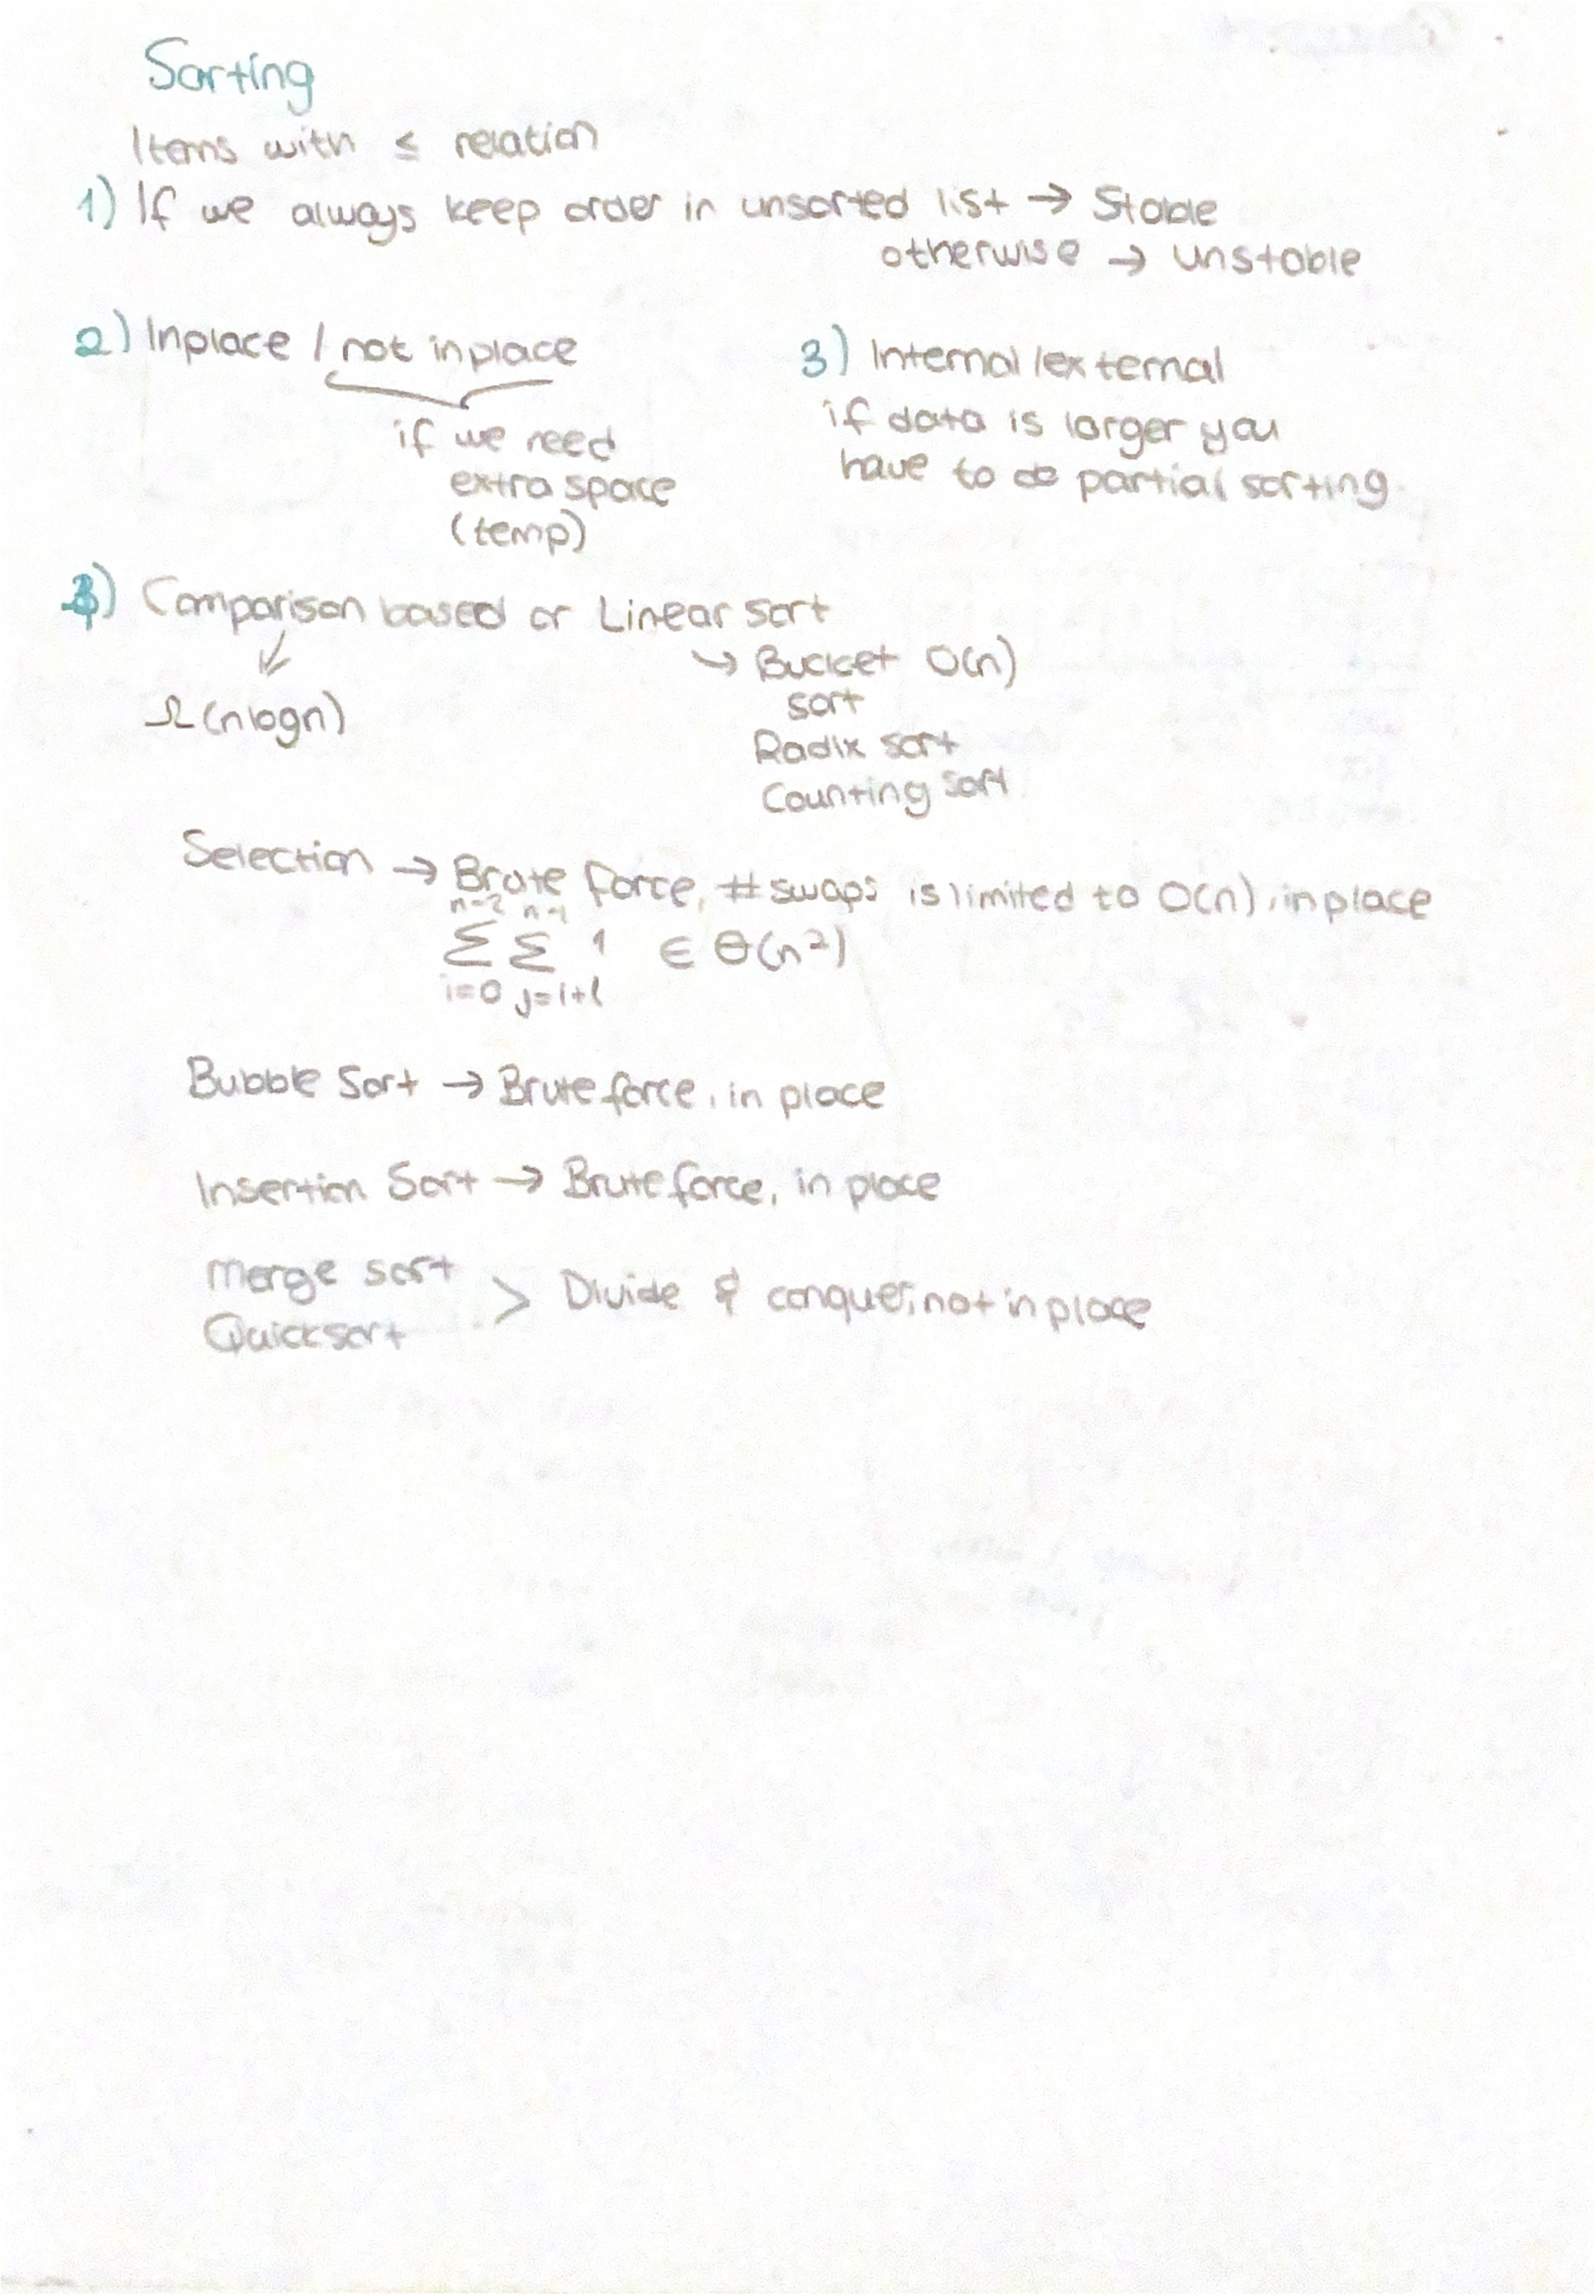 Sorting
Items with ≤ relation
1) If we always keep order in unsorted list → Stable
otherwise → unstable
2) Inplace / not inplace
if we need
extra space
(temp)
3) Internal/external
if data is larger you
have to do partial sorting
4) Comparison based or Linear sort
Ω(nlogn)
→ Bucket O(n)
sort
Radix sort
Counting sort
Selection → Brute force, # swaps is limited to O(n), inplace
n-2 n-1
Σ Σ 1 ∈ Θ(n²)
i=0 j=i+1
Bubble Sort → Brute force, in place
Insertion Sort → Brute force, in place
Merge sort
Quicksort
> Divide & conquer, not in place